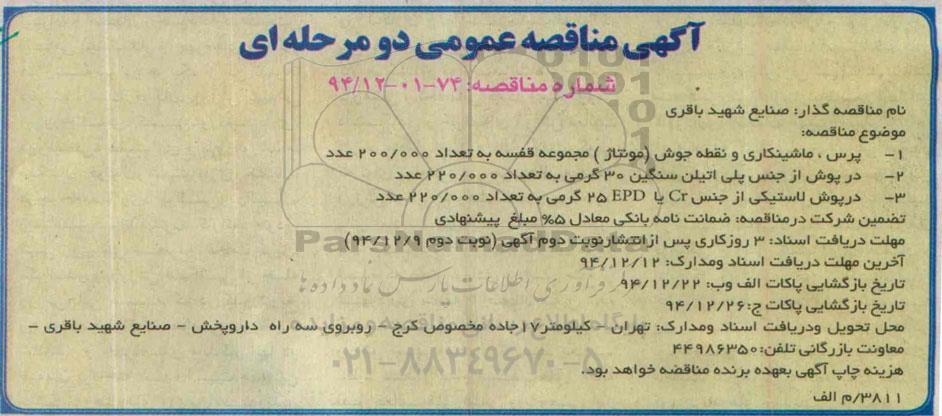 آگهی مناقصه عمومی دو مرحله ای
شماره مناقصه: ۷۴-۰۱-۹۴/۱۲
نام مناقصه گذار: صنایع شهید باقری
موضوع مناقصه:
۱- پرس ، ماشینکاری و نقطه جوش (مونتاژ ) مجموعه قفسه به تعداد ۲۰۰/۰۰۰ عدد
۲- در پوش از جنس پلی اتیلن سنگین ۳۰ گرمی به تعداد ۲۲۰/۰۰۰ عدد
۳- درپوش لاستیکی از جنس Cr یا EPD ۲۵ گرمی به تعداد ۲۲۰/۰۰۰ عدد
تضمین شرکت درمناقصه: ضمانت نامه بانکی معادل ۵% مبلغ پیشنهادی
مهلت دریافت اسناد: ۳ روزکاری پس ازانتشارنوبت دوم آگهی (نوبت دوم ۹۴/۱۲/۹)
آخرین مهلت دریافت اسناد ومدارک: ۹۴/۱۲/۱۲
تاریخ بازگشایی پاکات الف وب: ۹۴/۱۲/۲۲
تاریخ بازگشایی پاکات ج:۹۴/۱۲/۲۶
محل تحویل ودریافت اسناد ومدارک: تهران - کیلومتر۱۷جاده مخصوص کرج - روبروی سه راه داروپخش - صنایع شهید باقری -
معاونت بازرگانی تلفن:۴۴۹۸۶۳۵۰
هزینه چاپ آگهی بعهده برنده مناقصه خواهد بود.
۳۸۱۱/م الف
ParsNamadData
فرآوری اطلاعات پارس نماد داده ها
پایگاه اطلاع رسانی مناقصه و مزایده
۰۲۱-۸۸۳۴۹۶۷۰-۵